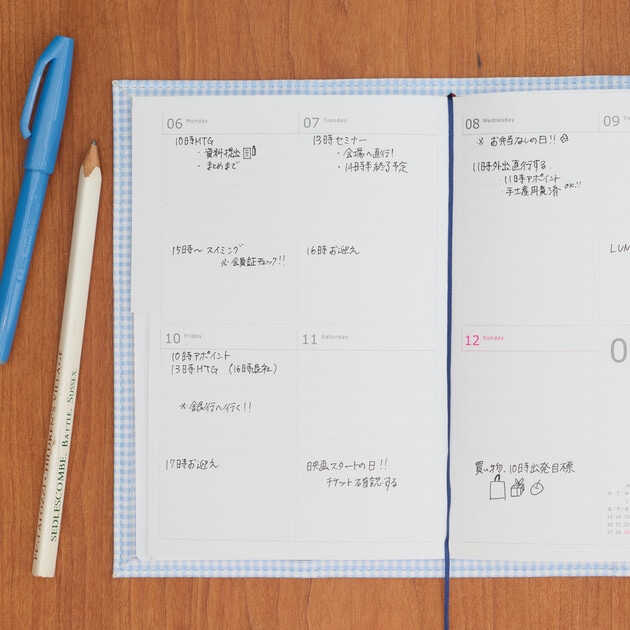 06 Monday
10時MTG
・資料提出
・まとめまで
15時〜 スイミング
※会員証チェック!!
07 Tuesday
13時セミナー
・会場へ直行!
・14時半終了予定
16時お迎え
08 Wednesday
※ お弁当なしの日!!
11時外出直行する。
・11時アポイント
・手土産用意済 OK!!
09 Th
LUN
10 Friday
10時アポイント
13時MTG (16時退社)
※銀行へ行く!!
17時お迎え
11 Saturday
映画スタートの日!!
チケット確認する
12 Sunday
買い物、10時出発目標
0
PESTALOZZI CHILDREN'S VILLAGE
SEDLESCOMBE, BATTLE, SUSSEX